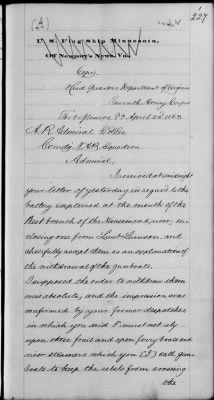 227
U. S. Flag Ship Minnesota,
Off Newport's News, Va.
Copy
Head Quarters Department of Virginia
Seventh Army Corps
Fort Monroe Va April 22 1863
A. R. Admiral
Comdg N.A.B. Squadron
Admiral,
I received at midnight
your letter of yesterday in regard to the
battery captured at the mouth of the
West branch of the Nansemond river, in-
closing one from Lieut Lamson, and
cheerfully accept them as an explanation of
the withdrawal of the gunboats.
I supposed the order to withdraw them
was absolute, and the impression was
confirmed by your former despatches
in which you said I must not rely
upon these frail and open ferry boats and
river steamers which you call gun
boats to keep the rebels from crossing
the